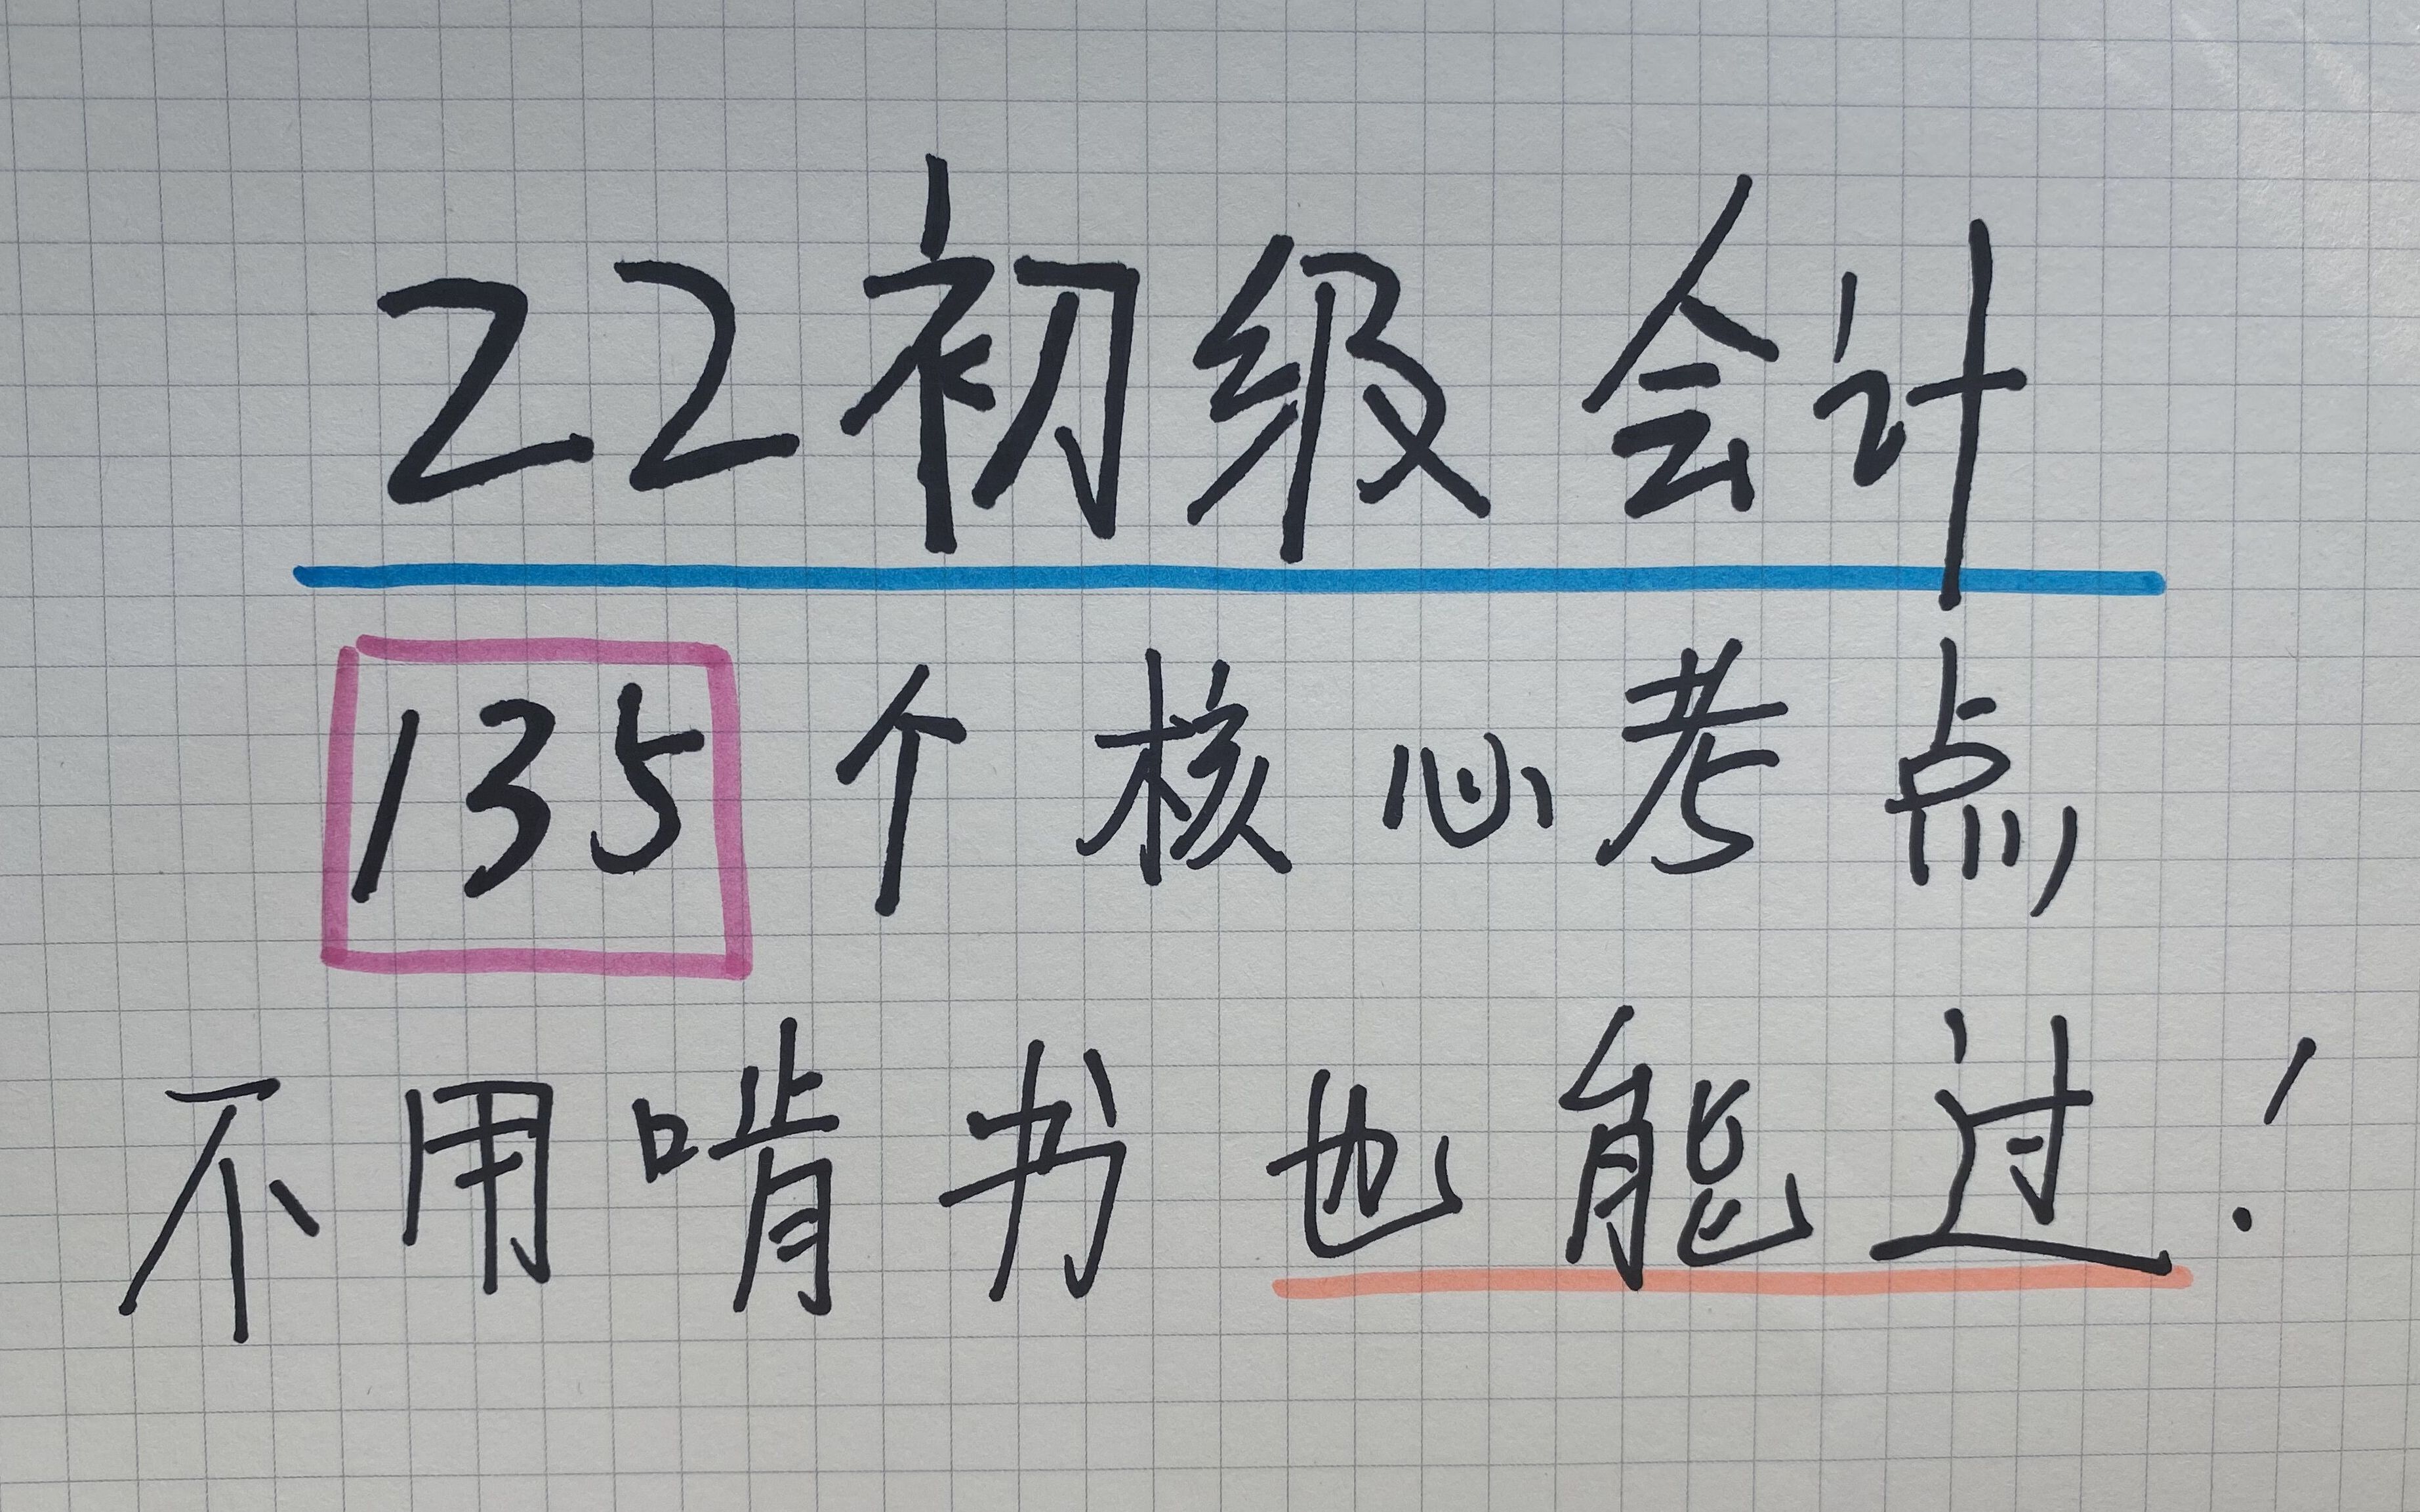 22初级会计
135个核心考点
不用啃书也能过!